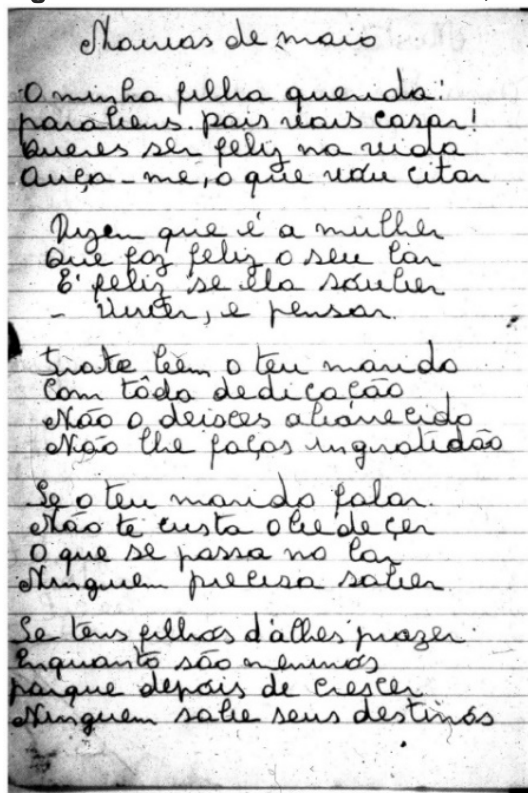 Noivas de maio
O minha filha querida!
parabens. pois vais casar!
Queres ser feliz na vida
ouça-me, o que vou citar
Dizem que é a mulher
Que faz feliz o seu lar
E' feliz se ela souber
- Viver, e pensar.
Trate bem o teu marido
Com tôda dedicação
Não o deixes aborrecido
Não lhe faças ingratidão
Se o teu marido falar.
Não te custa obedeçer
O que se passa no lar
Ninguem precisa saber.
Se tens filhos d'alhes prazer
Enquanto são meninos
porque depois de crescer
Ninguem sabe seus destinos